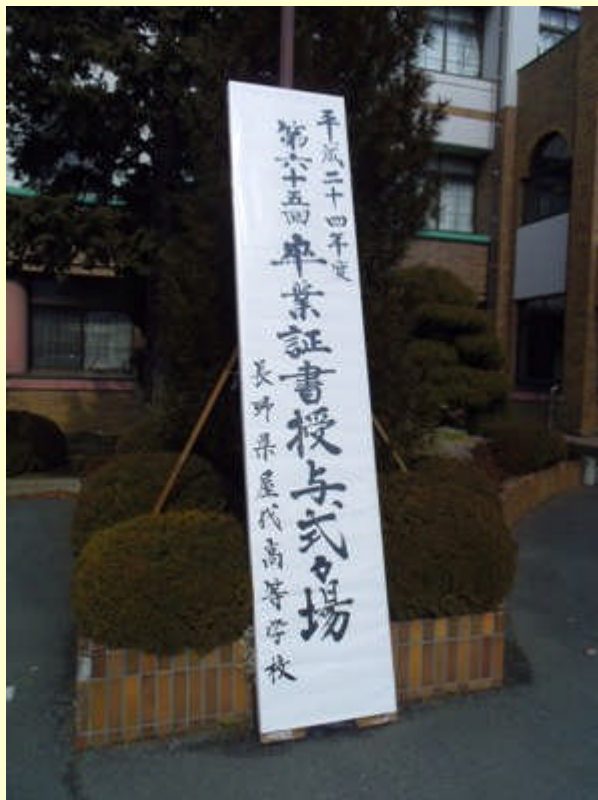 平成二十四年度
第六十五回卒業証書授与式々場
長野県屋代高等学校